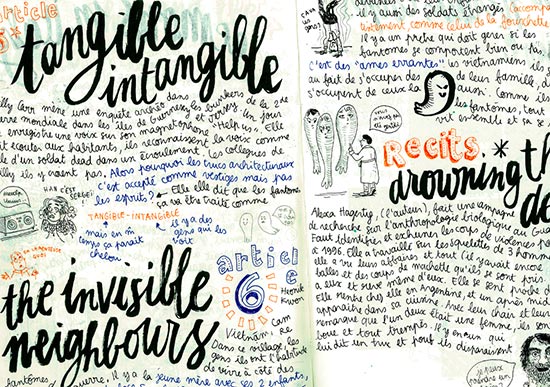 article
5*
tangible
intangible
lly Carr mène une enquête archéo dans les bunkers de la 2de
erre mondiale dans les îles de Guernesey et Jersey. Un jour
enregistre une voix sur son magnétophone "Help us". Elle
it écouter aux habitants, ils reconnaissent la voix comme
le d'un soldat dead dans un éroulement. Les collègues de
lly ils y voient pas. Alors pourquoi les trucs architecturaux
c'est accepté comme vestiges mais pas
les esprits? Elle elle dit que les fantômes,
ça va être traité comme
HAN C'EST
TANGIBLE - INTANGIBLE
mais en m
temps ça paraît
chelou
il y a des
gens qui les
voit
the invisible
neighbours
article
6
Heonik
Kwon
Cam
Vietnam, Re
Dans ce village, les
gens ils ont l'habitude
de vivre à côté des
fantômes de guerre. Il y a la jeune mère avec ses 2 enfants,
il y aussi des soldats étrangers (accomp
testement comme celui de la fourchette
Il y a un prêtre qui doit gérer si les
fantômes se comportent bien ou pas.
C'est des "âmes errantes" les vietnamiens ils
au fait de s'occuper des de leur famille, d
s'occupent de ceux là aussi. Comme ils
les fantômes, tout
vit ensemble et se
Récits *
drowning the
de
Alexa Hagerty, (l'auteur), fait une campagne
de recherche sur l'anthropologie biologique au Gua
Faut identifier et exhumer les corps de violences p
à 1996. Elle a travaillé sur les squelettes de 3 homm
elle a vu leurs affaires et tout (il y avait encore
balles et des coups de machette qu'ils se sont pris
Elle rentre chez elle en Argentine, et un après midi
apparaître dans sa cuisine avec leur chair et leurs
remarque que l'un deux était une femme, ils son
boue et tout trempés. Il y en a un qui
lui dit un truc et pouf ils disparaissent
je peux